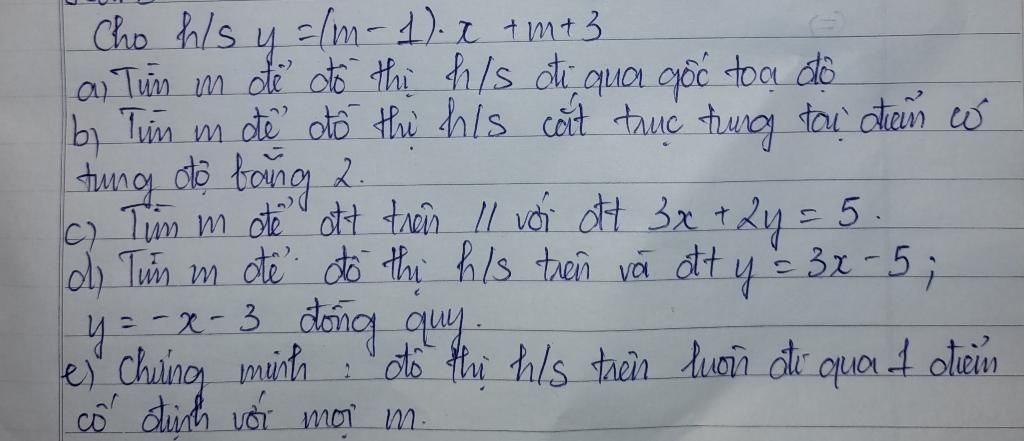 Cho h/s y = (m - 1). x + m + 3
a) Tìm m để đồ thị h/s đi qua gốc toạ độ
b) Tìm m để đồ thị h/s cắt trục tung tại điểm có
tung độ bằng 2.
c) Tìm m để đt trên // với đt 3x + 2y = 5.
d) Tìm m để đồ thị h/s trên và đt y = 3x - 5 ;
y = -x - 3 đồng quy.
e) Chứng minh : đồ thị h/s trên luôn đi qua 1 điểm
cố định với mọi m.